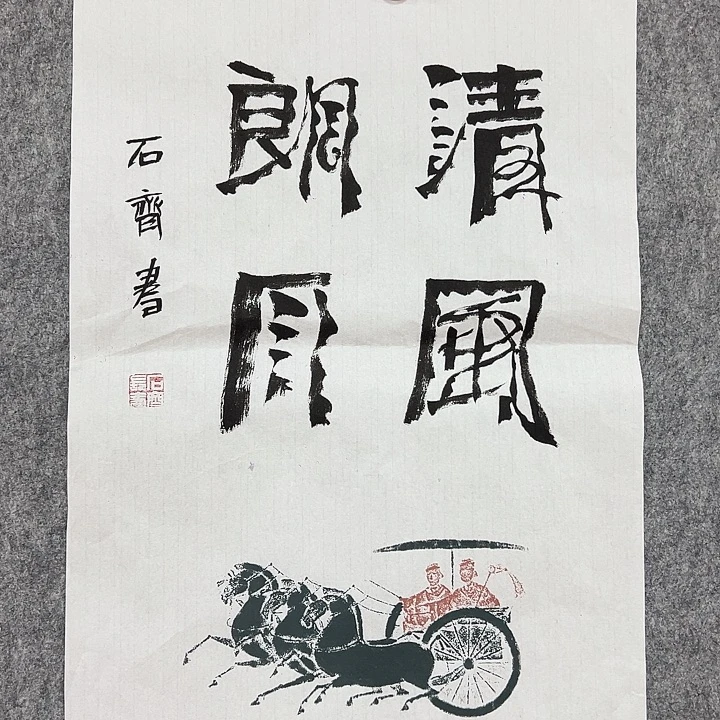 清風
朗月
石齊書